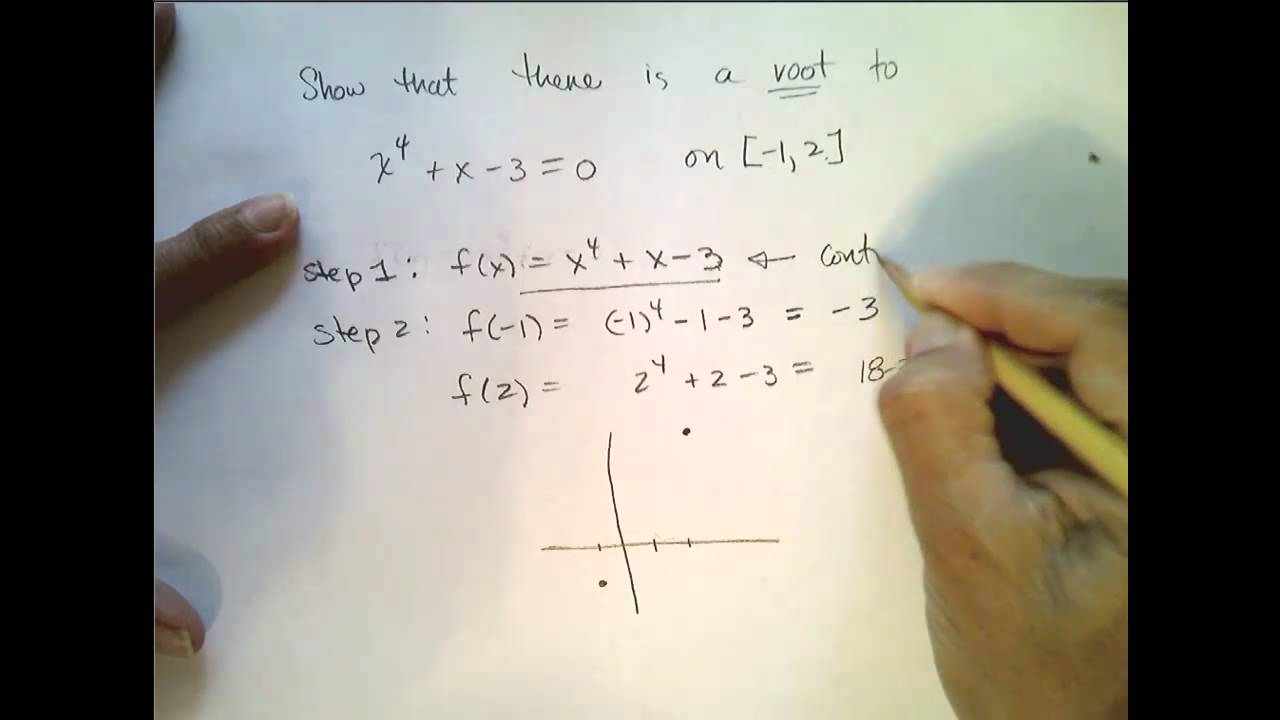 Show that there is a root to
x⁴ + x - 3 = 0 on [-1, 2]
step 1: f(x) = x⁴ + x - 3 ← cont
step 2: f(-1) = (-1)⁴ - 1 - 3 = -3
f(2) = 2⁴ + 2 - 3 = 18-